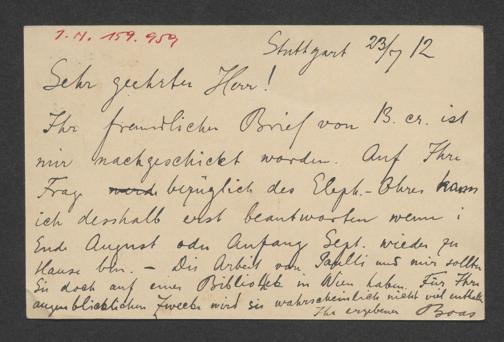 I. N. 159.959
Stuttgart 23/7 12
Sehr geehrter Herr!
Ihr freundlicher Brief von 13. cr. ist
mir nachgeschickt worden. Auf Ihre
Frage bezüglich des Eleph.-Ohres kann
ich desshalb erst beantworten wenn i
Ende August oder Anfang Sept. wieder zu
Hause bin. – Die Arbeit von Paulli und mir sollten
Sie doch auf einer Bibliothek in Wien haben. Für Ihre
augenblicklichen Zwecke wird sie wahrscheinlich nicht viel enthalten
Ihr ergebener Boas